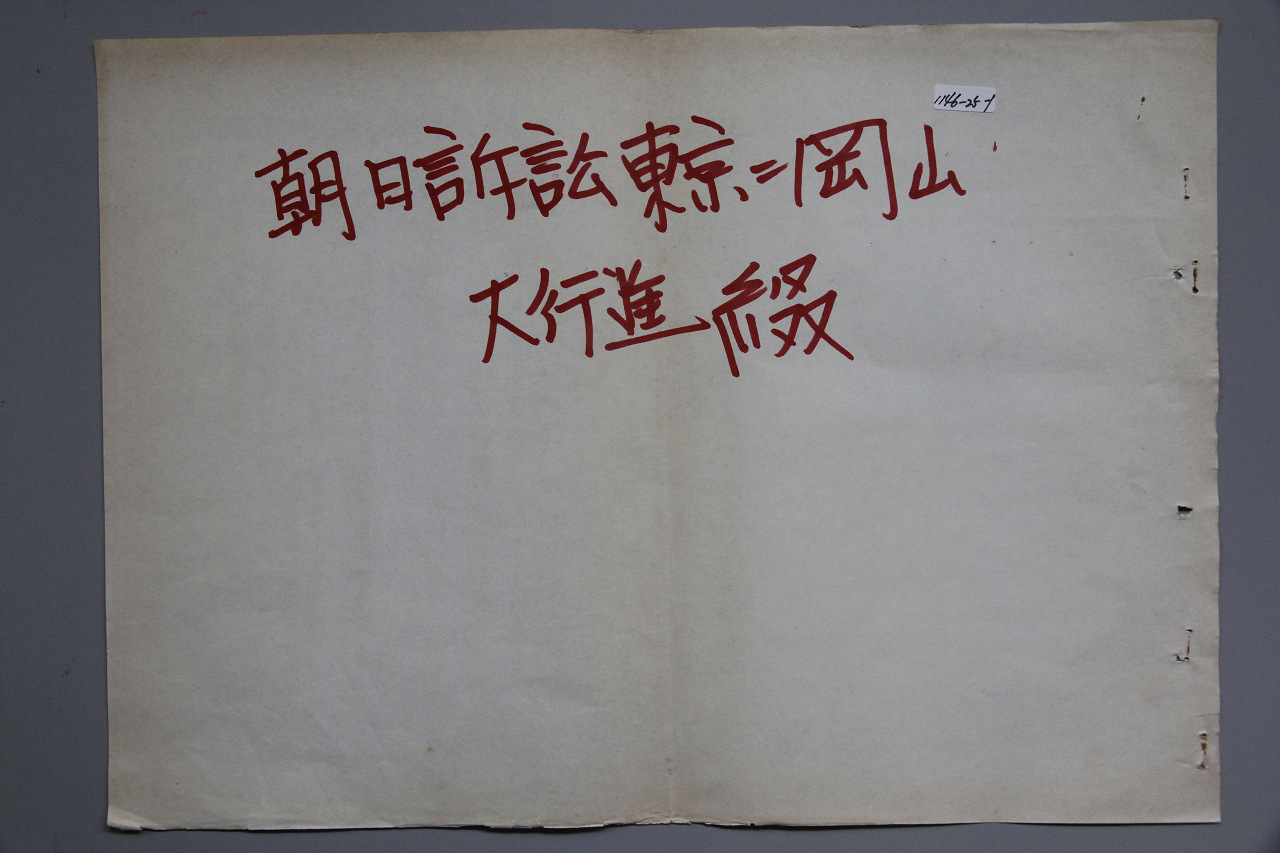 1146-25-1
朝日訴訟東京=岡山
大行進綴